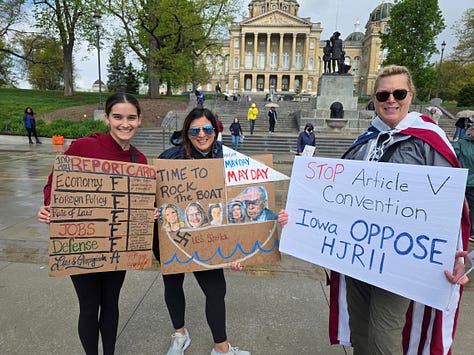 REPORT CARD
Economy F
Foreign Policy F
Rule of Law F
JOBS F
Defense F
TIME TO
ROCK THE
BOAT
MAYDAY
MAYDAY
MAY DAY
STOP Article V
Convention
Iowa OPPOSE
HJR11